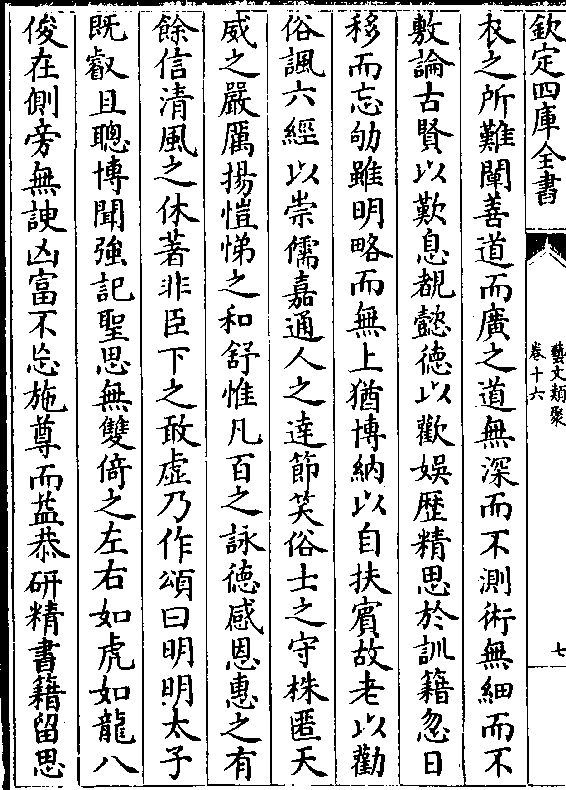 欽定四庫全書
藝文類聚
卷十六
七
衣之所難闡善道而廣之道無深而不測術無細而不
敷論古賢以歎息覩懿德以歡娛歷精思於訓籍忽日
移而忘劬雖明略而無上猶博納以自扶賓故老以勸
俗諷六經以崇儒嘉通人之達節笑俗士之守株匿天
威之嚴厲揚愷悌之和舒惟凡百之詠德感恩惠之有
餘信清風之休著非臣下之敢虛乃作頌曰明明太子
既叡且聰博聞強記聖思無雙倚之左右如虎如龍八
俊在側旁無諛凶富不忘施尊而益恭研精書籍留思